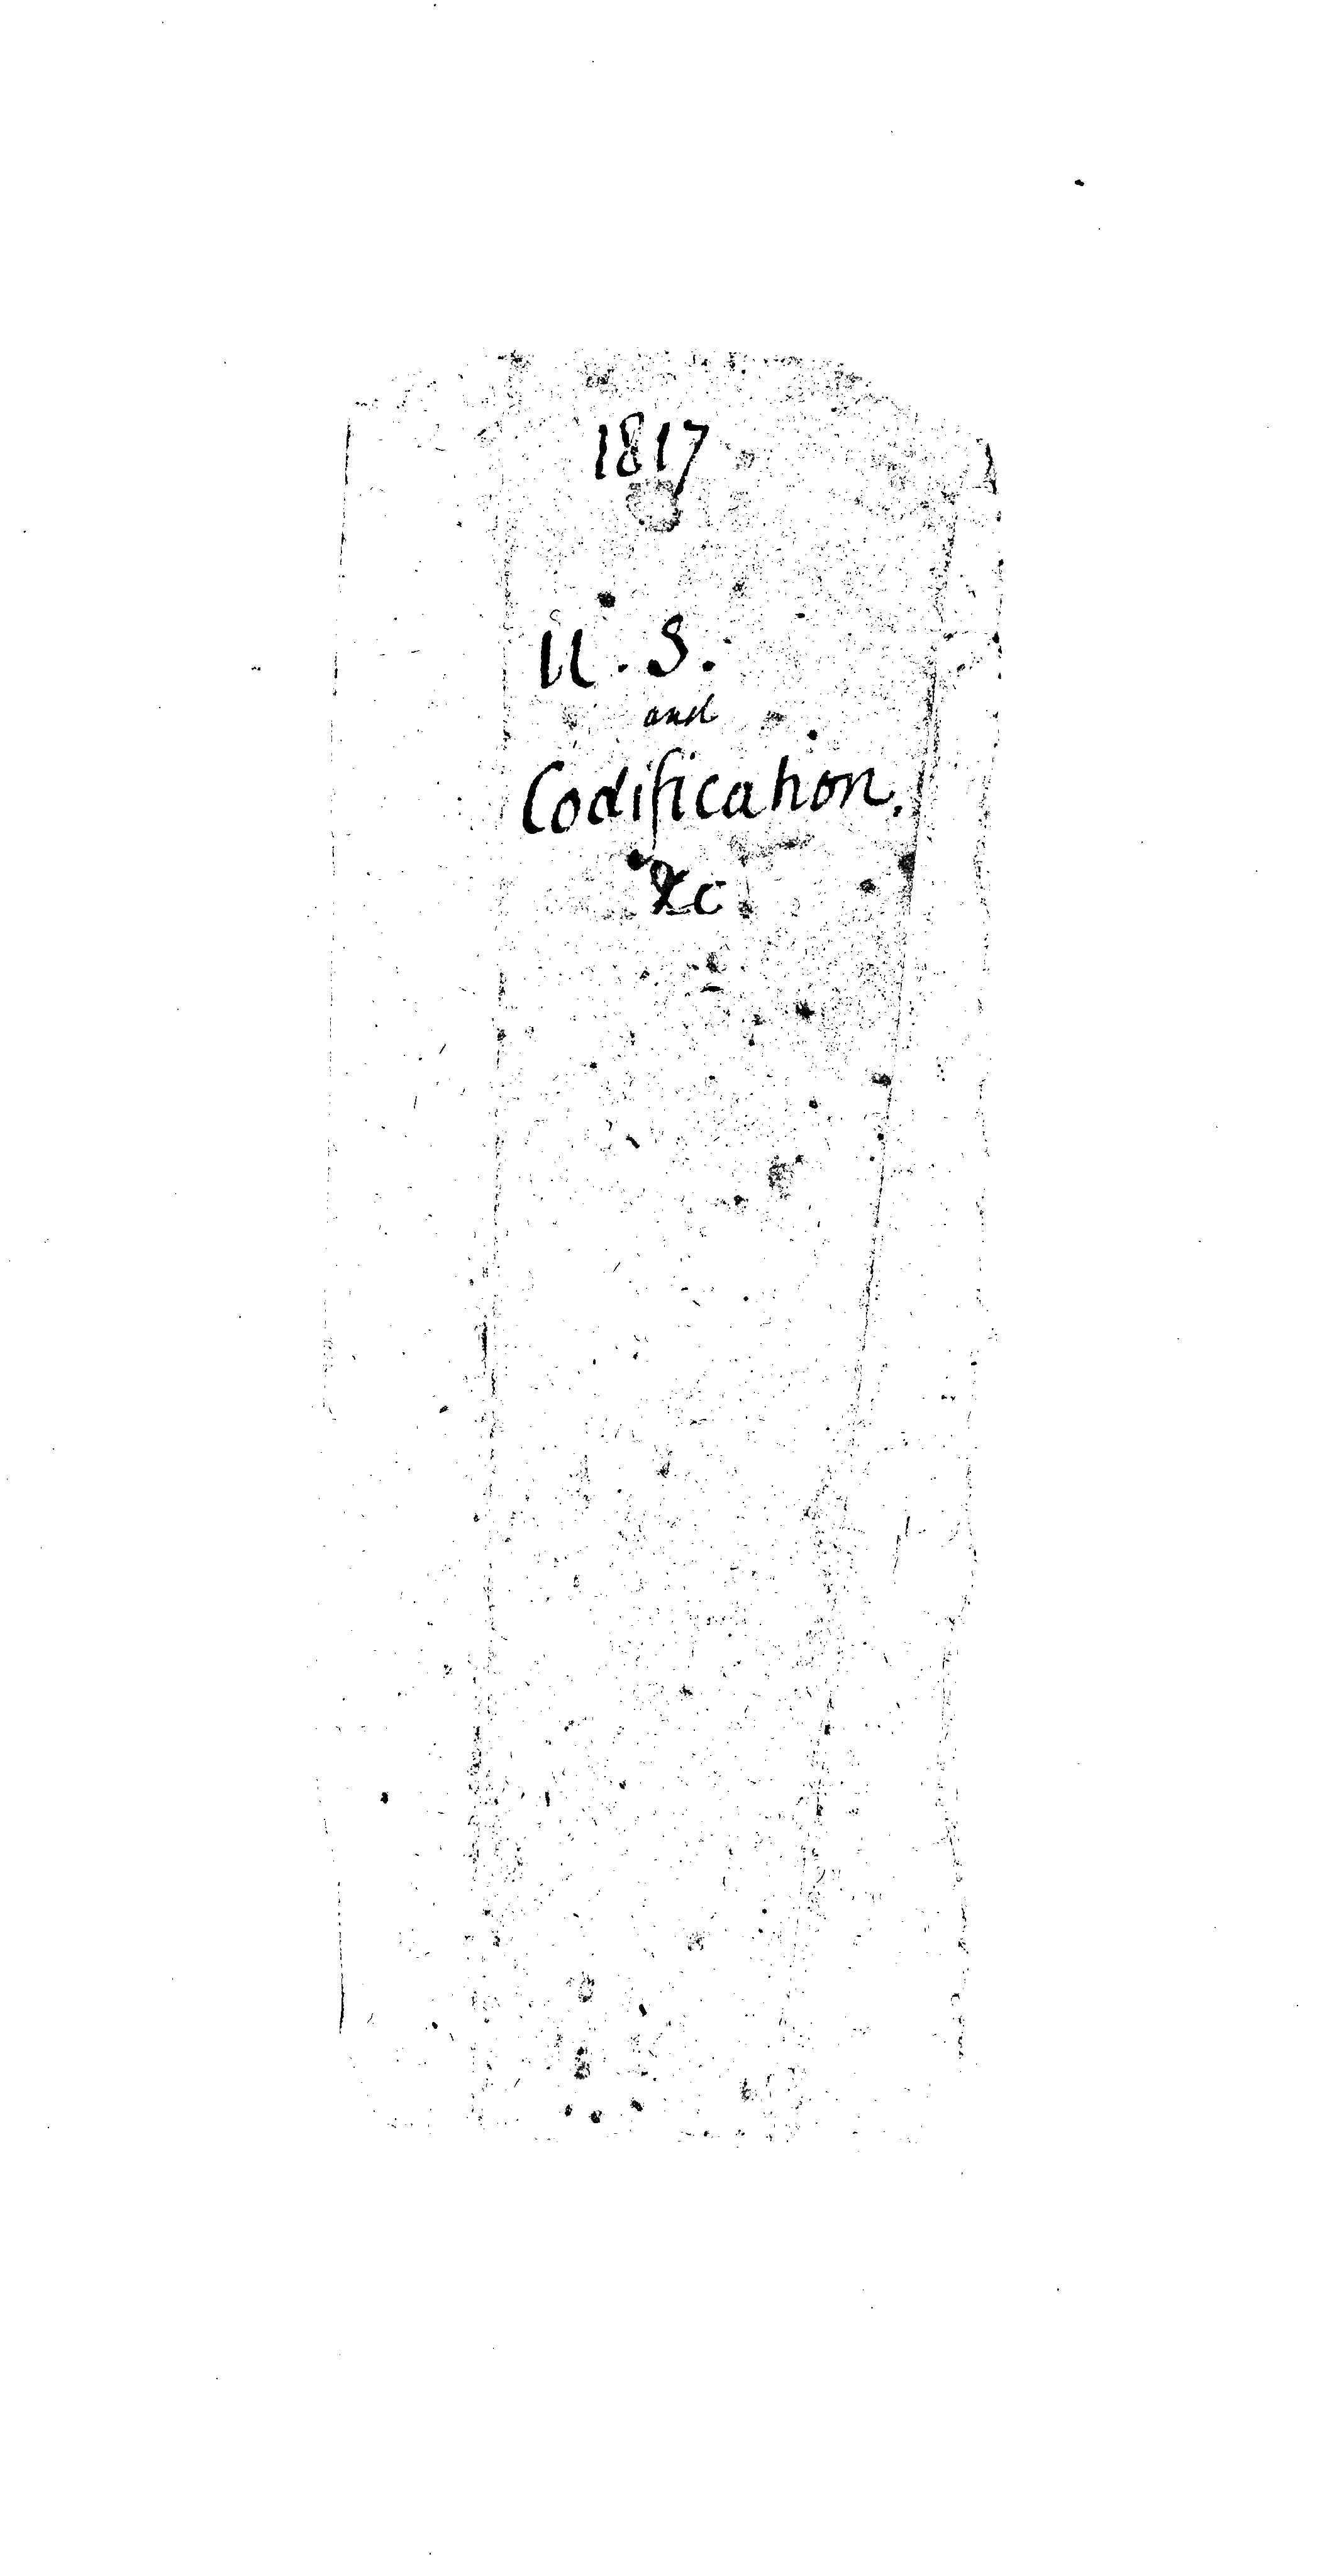 1817
U. S.
and
Codification,
&c